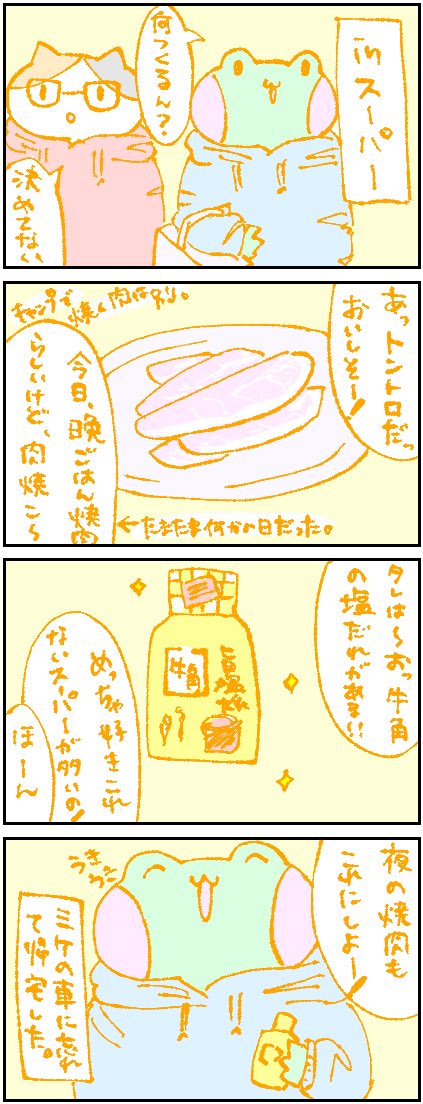 inスーパー
何つくるん?
決めてない
あっトントロだっ
おいしそー!
キャンプで焼く肉は別り。
今日、晩ごはん焼肉
らしいけど、肉焼こ〜
←たまたま何かの日だった。
タレは〜おっ牛角
の塩だれがある!!
牛角
旨塩だれ
めっちゃ好きこれ
ないスーパーが多いの!
ほーん
夜の焼肉も
これにしよー!
うきうき
ミケの車に忘れ
て帰宅した。